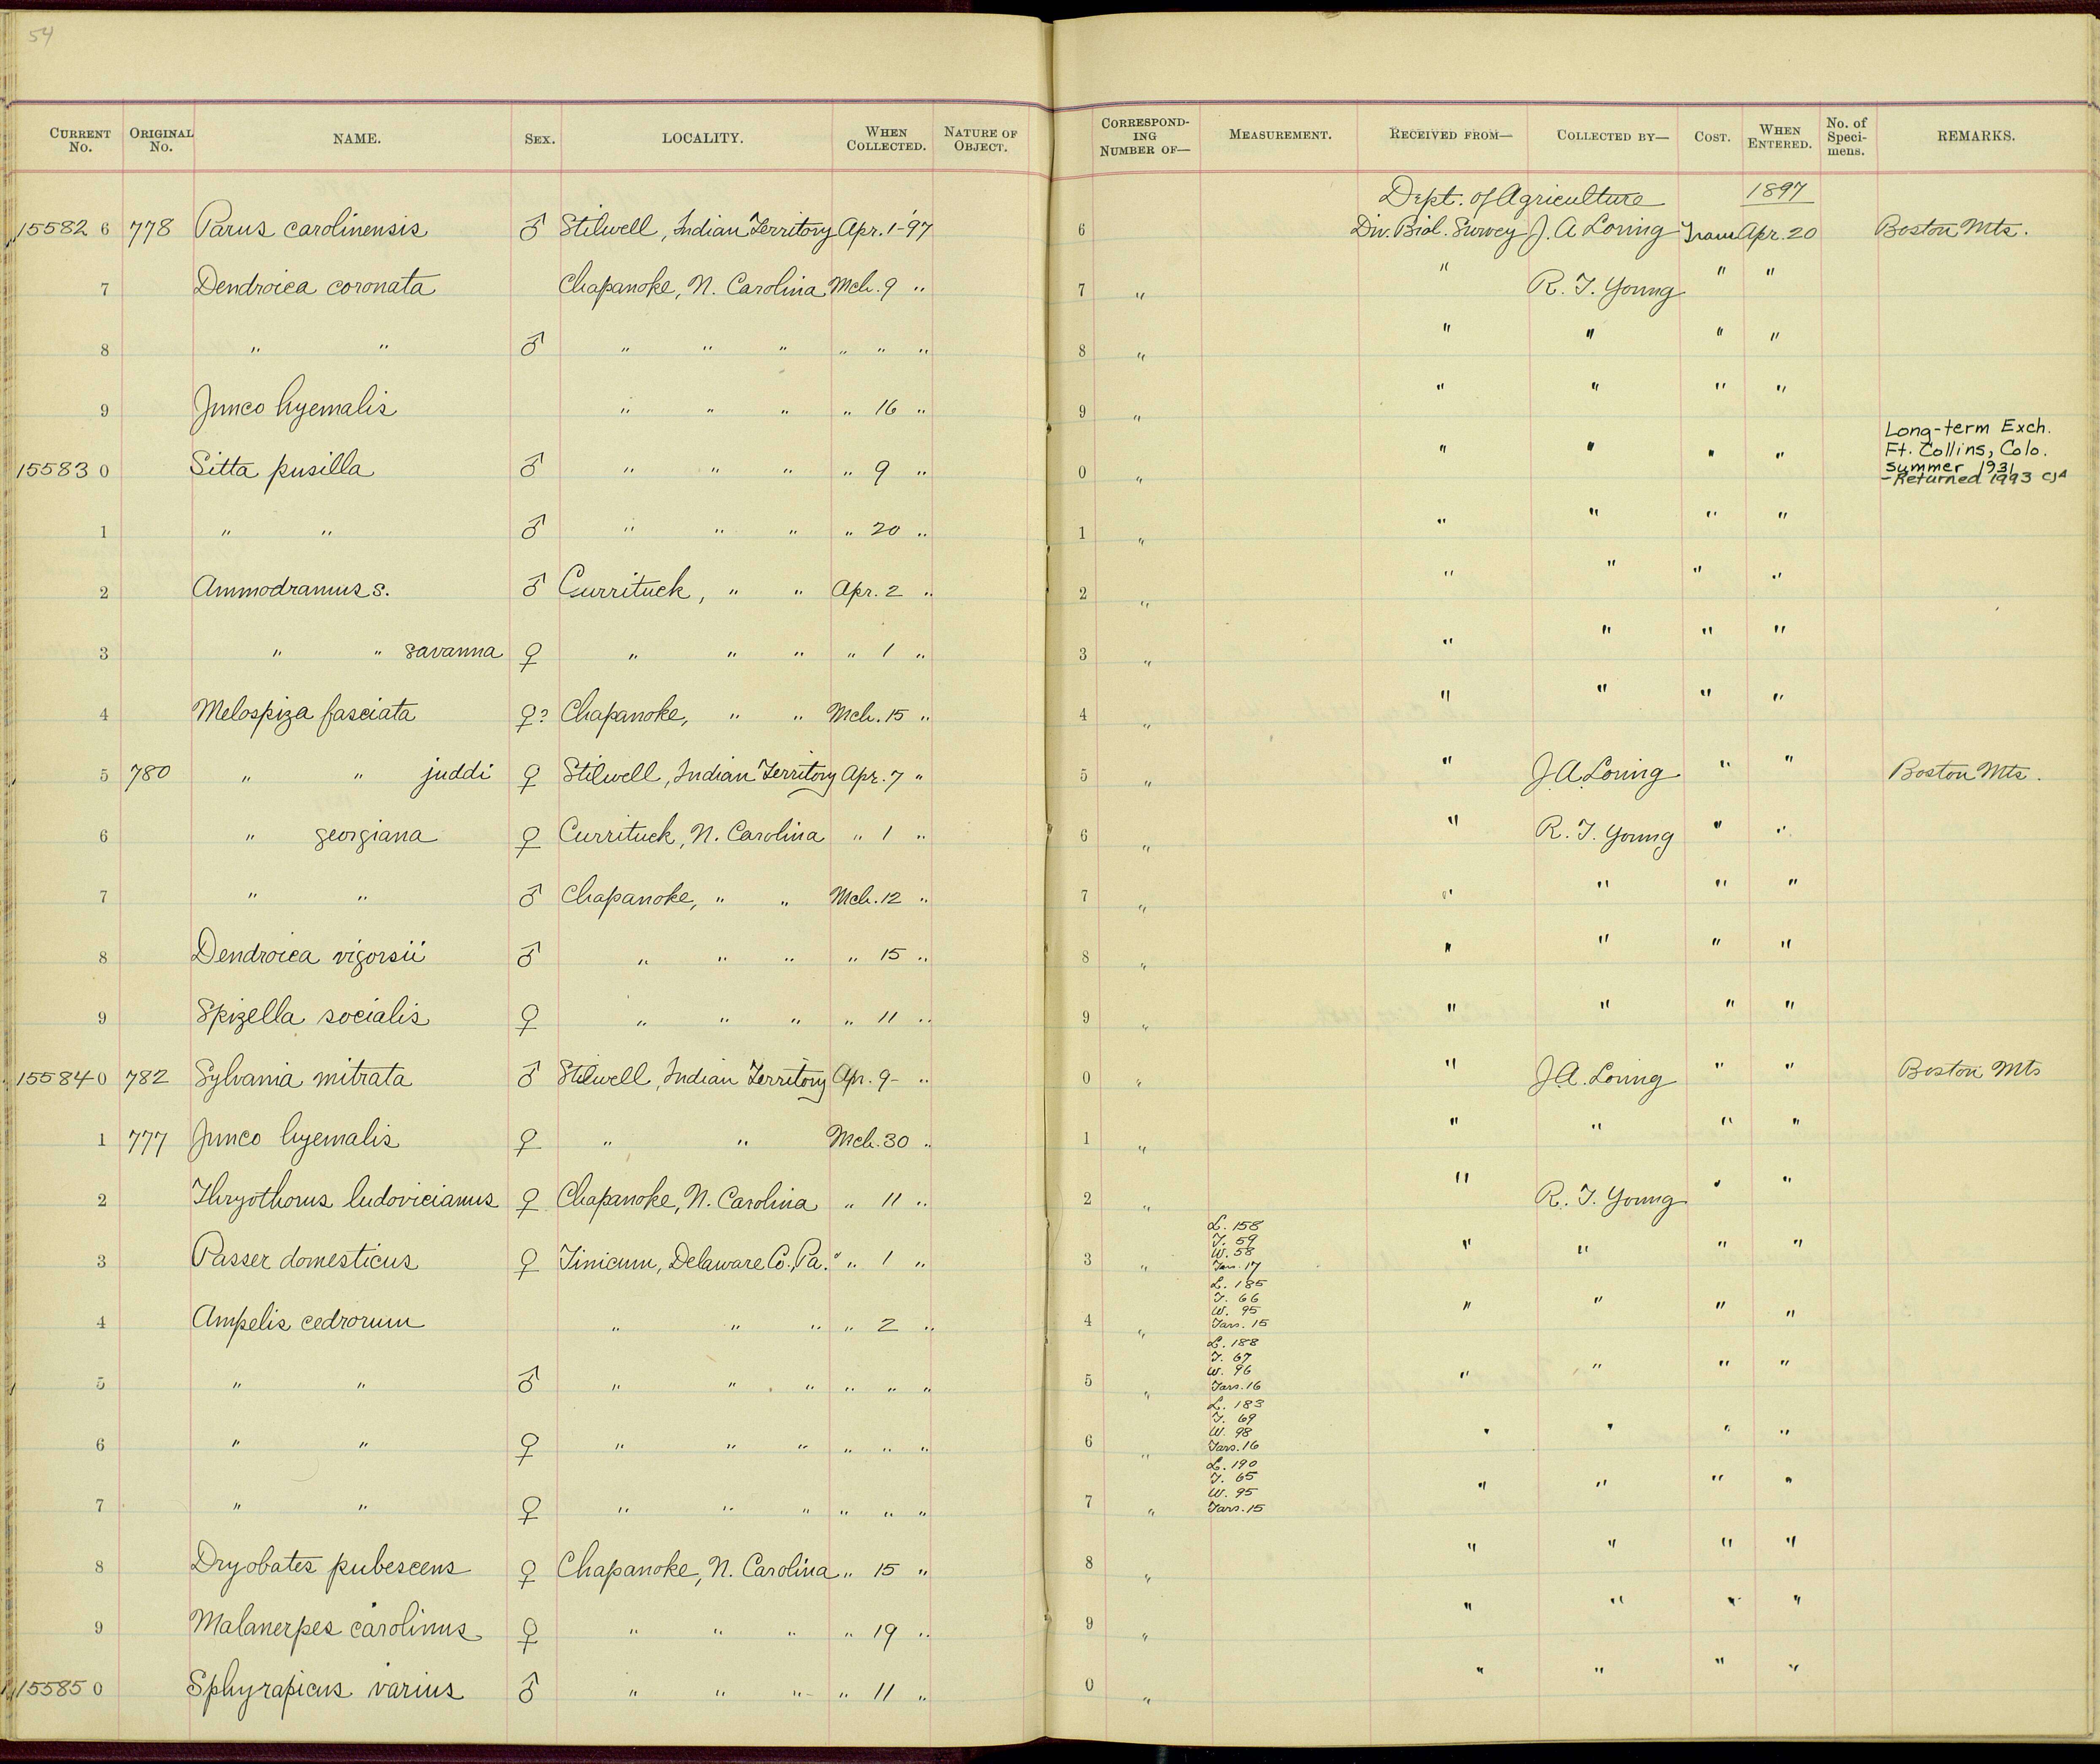 54
CURRENT No. ORIGINAL No. NAME. SEX. LOCALITY. WHEN COLLECTED. NATURE OF OBJECT. CORRESPONDING NUMBER OF— MEASUREMENT. RECEIVED FROM— COLLECTED BY— COST. WHEN ENTERED. No. of Specimens. REMARKS.
Dept. of Agriculture 1897
15582 6 778 Parus carolinensis ♂ Stilwell, Indian Territory Apr. 1-'97 6 Div. Biol. Survey J. A Loring Trans Apr. 20 Boston Mts.
7 Dendroica coronata Chapanoke, N. Carolina Mch. 9 " 7 " " R. T. Young " "
8 " " ♂ " " " " " " 8 " " " " "
9 Junco hyemalis " " " " 16 " 9 " " " " "
15583 0 Sitta pusilla ♂ " " " " 9 " 0 " " " " " Long-term Exch. Ft. Collins, Colo. summer 1931 -Returned 1993 CJA
1 " " ♂ " " " " 20 " 1 " " " " "
2 Ammodramus s. ♂ Currituck, " " Apr. 2 " 2 " " " " "
3 " " savanna ♀ " " " " 1 " 3 " " " " "
4 Melospiza fasciata ♀? Chapanoke, " " Mch. 15 " 4 " " " " "
5 780 " " juddi ♀ Stilwell, Indian Territory Apr. 7 " 5 " " J. A. Loring " " Boston Mts.
6 " georgiana ♀ Currituck, N. Carolina " 1 " 6 " " R. T. Young " "
7 " " ♂ Chapanoke, " " Mch. 12 " 7 " " " " "
8 Dendroica vigorsii ♂ " " " " 15 " 8 " " " " "
9 Spizella socialis ♀ " " " " 11 " 9 " " " " "
15584 0 782 Sylvania mitrata ♂ Stilwell, Indian Territory Apr. 9- " 0 " " J. A. Loring " " Boston Mts
1 777 Junco hyemalis ♀ " " Mch. 30 " 1 " " " " "
2 Thryothorus ludovicianus ♀ Chapanoke, N. Carolina " 11 " 2 " " R. T. Young " "
3 Passer domesticus ♀ Tinicum, Delaware Co., Pa. " 1 " 3 " L. 158 T. 59 W. 58 Tars. 17 " " " "
4 Ampelis cedrorum " " " " 2 " 4 " L. 185 T. 66 W. 95 Tars. 15 " " " "
5 " " ♂ " " " " " " 5 " L. 188 T. 67 W. 96 Tars. 16 " " " "
6 " " ♀ " " " " " " 6 " L. 183 T. 69 W. 98 Tars. 16 " " " "
7 " " ♀ " " " " " " 7 " L. 190 T. 65 W. 95 Tars. 15 " " " "
8 Dryobates pubescens ♀ Chapanoke, N. Carolina " 15 " 8 " " " " "
9 Malanerpes carolinus ♀ " " " " 19 " 9 " " " " "
15585 0 Sphyrapicus varius ♂ " " " " 11 " 0 " " " " "